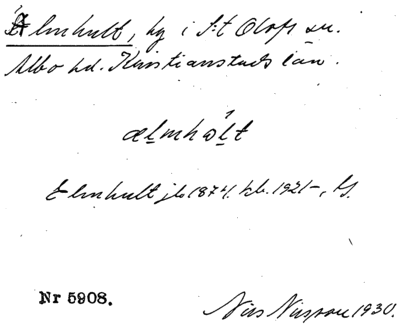 Älmhult, by i S:t Olofs sn.
Albo hd. Kristianstads län.
ælmhòlt
Elmhult jb 1874. kb. 1921-, ls.
Nr 5908.
Nils Nilsson 1930.